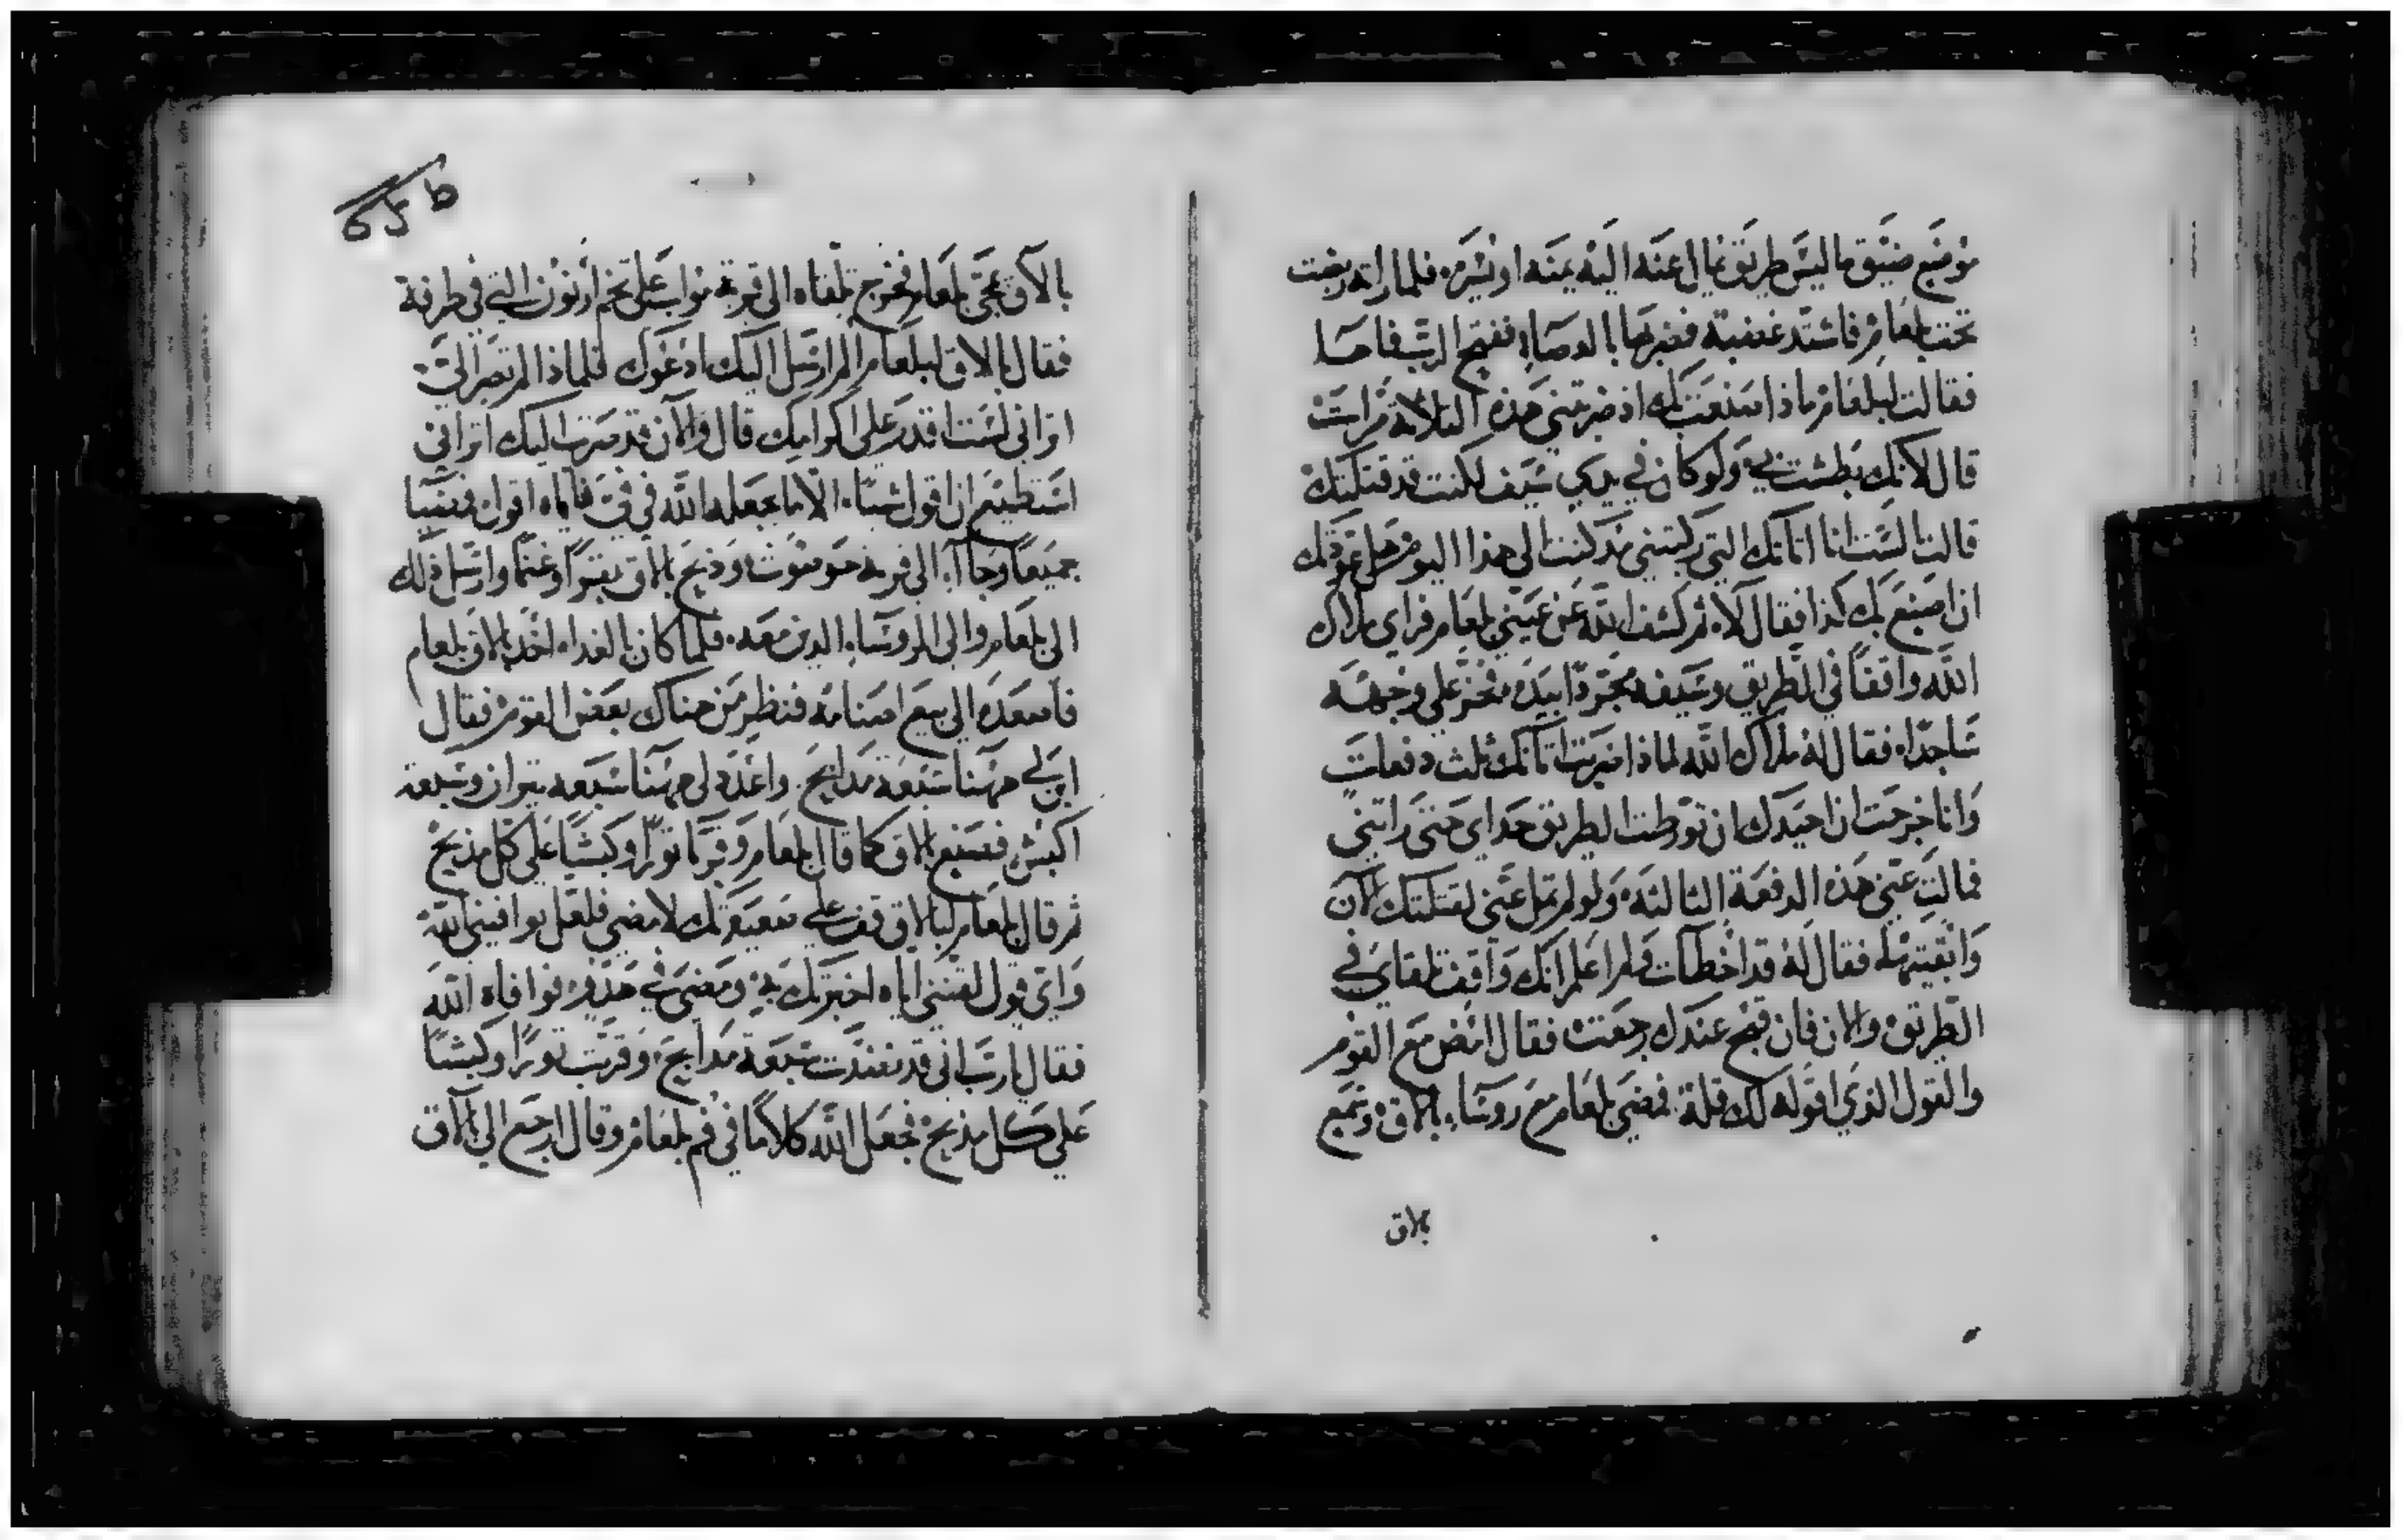 موضع ضيق ماليس طريق تمال عنه اليه يمنه او يسره فلما راته ربضت
تحت بلعام فاشتد غضبه فضربها بالعصاه ففتح الرب فاها
فقالت لبلعام ماذا صنعت لك اذ ضربتني هذه الثلاثة مرات
قال لانك بطشت بي ولو كان في يدي سيف لكنت قد قتلتك
قالت الست انا اتانك التي ركبتني مذ كنت الى هذا اليوم هل عودتك
ان اصنع بك كذا فقال لا ثم كشف الله عن عيني بلعام فراي ملاك
الله واقفاً في الطريق وسيفه مجرداً بيده فخر علي وجهه
ساجداً فقال له ملاك الله لماذا ضربت اتانك ثلث دفعات
وانا خرجت ان احيدك ان تورطت الطريق حداي حتى راتني
فمالت عني هذه الدفعة الثالثه ولو لم تمل عني لقتلتك الان
وابقيتها فقال له قد اخطات ولم اعلم انك واقف تلقاي في
الطريق والان فان قبح عندك رجعت فقال امض مع القوم
والقول الذي اقوله لك قلة فمضي بلعام مع روسا بالاق وسمع
بالاق
بالاق بمجي بلعام فخرج تلقاه الى قرية مواب على تخم ارنون التي في طرفة
فقال بالاق لبلعام الم ارسل اليك ادعوك فلماذا لم تصر الي
اتراني لست اقدر على اكرامك قال والان قد صرت اليك اتراني
استطيع ان اقول شيئا الا ما يجعله الله في في فاياه اقول فمضيا
جميعاً وجاآ الى قرية حوصوث وذبح بالاق بقراً وغنماً وارسل ذلك
الى بلعام والى الروساء الذين معه فلما كان بالغداه اخذ بالاق بلعام
فاصعده الى بيع اصنامه فنظر من هناك بعض القوم فقال
ابن لي ههنا سبعة مذابح واعد لي ههنا سبعه تيران وسبعة
اكبش فصنع بالاق كما قال بلعام وقربا ثوراً وكبشاً على كل مذبح
ثم قال بلعام لبالاق قف على صعيدتك لامضي فلعل يوافيني الله
واي قول لقنني اياه اخبرتك به ومضي في فوافاه الله
فقال يا رب اني قد نضدت سبعة مذابح وقربت ثوراً وكبشاً
على كل مذبح فجعل الله كلاماً في فم بلعام وقال ارجع الى بالاق